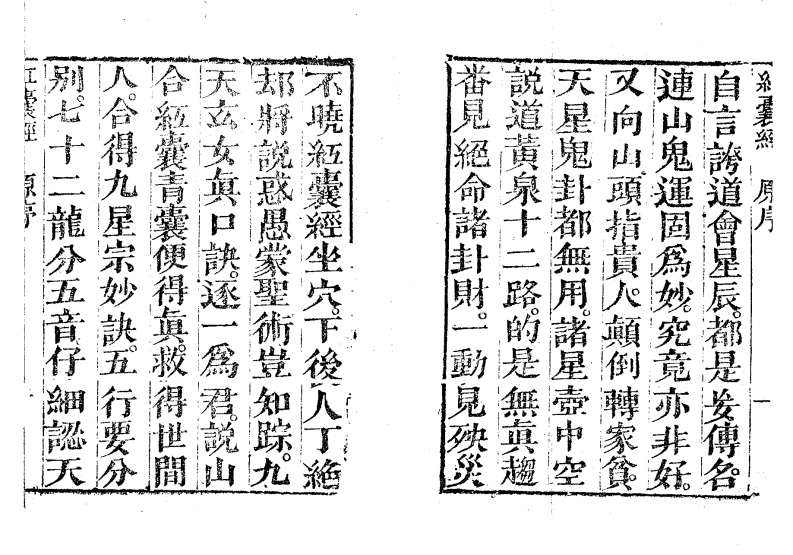 紅囊經 原序 一
自言誇道會星辰。都是妄傳名。
連山鬼運固爲妙。究竟亦非好。
又向山頭指貴人。顛倒轉家貧。
天星鬼卦都無用。諸星壺中空
說道黃泉十二路。的是無眞趨
番見絕命諸卦財。一動見殃災
不曉紅囊經坐穴。下後人丁絕
却將說惑愚蒙聖術豈知踪。九
天玄女眞口訣。逐一爲君說山
合紅囊青囊便得眞。救得世間
人。合得九星宗妙訣。五行要分
別。七十二龍分五音仔細認天
紅囊經 原序